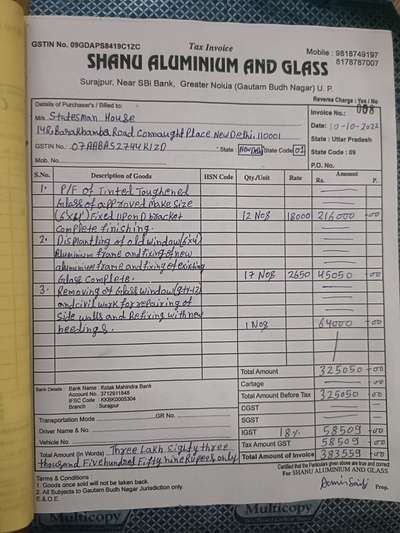 GSTIN No. 09GDAPS8419C1ZC
Tax Invoice
Mobile : 9818749197
8178787007
SHANU ALUMINIUM AND GLASS
Surajpur, Near SBI Bank, Greater Noida (Gautam Budh Nagar) U. P.
Reverse Charge : Yes / No
Details of Purchaser's / Billed to:
Invoice No.: 008
M/s Statesman House
Date: 10-10-2022
148, Barakhamba Road Connaught Place New Delhi. 110001
State : Uttar Pradesh
GSTIN No.: 07AABAS2744K1ZD State : New Delhi State Code 01
State Code : 09
Mob. No.
P.O. No.
S.No. Description of Goods HSN Code Qty/Unit Rate Amount
Rs. P.
1. P/F of Tinted Toughened
Glass of approved make size
(6'x4') Fixed upon D bracket 12 Nos 18000 216000 -00
Complete finishing.
2. Dismantling of old window (6'x4')
Aluminium frame and fixing of new
aluminium frame and fixing of existing 17 Nos 2650 45050 -00
Glass Complete.
3. Removing of Glass window
and civil work for repairing of
Side walls and Refixing with new 1 Nos 64000 -00
beetings.
Total Amount 325050 -00
Bank Details : Bank Name : Kotak Mahindra Bank
Account No. 3712911848
IFSC Code : KKBK0005304
Branch Surajpur
Cartage
Total Amount Before Tax 325050 -00
CGST
Transportation Mode GR No.
SGST
Driver Name & No.
IGST 18% 58509 -00
Vehicle No.
Tax Amount GST 58509 -00
Total Amount (In Words) Three Lakh Eighty three
Total Amount of Invoice 383559 -00
thousand Five hundred Fifty nine Rupees only
Certified that the Particulars given above are true and correct
For SHANU ALUMINIUM AND GLASS
Terms & Conditions :
1. Goods once sold will not be taken back.
2. All Subjects to Gautam Budh Nagar Jurisdiction only.
E.& O.E.
Prop.
Multicopy
Multicopy